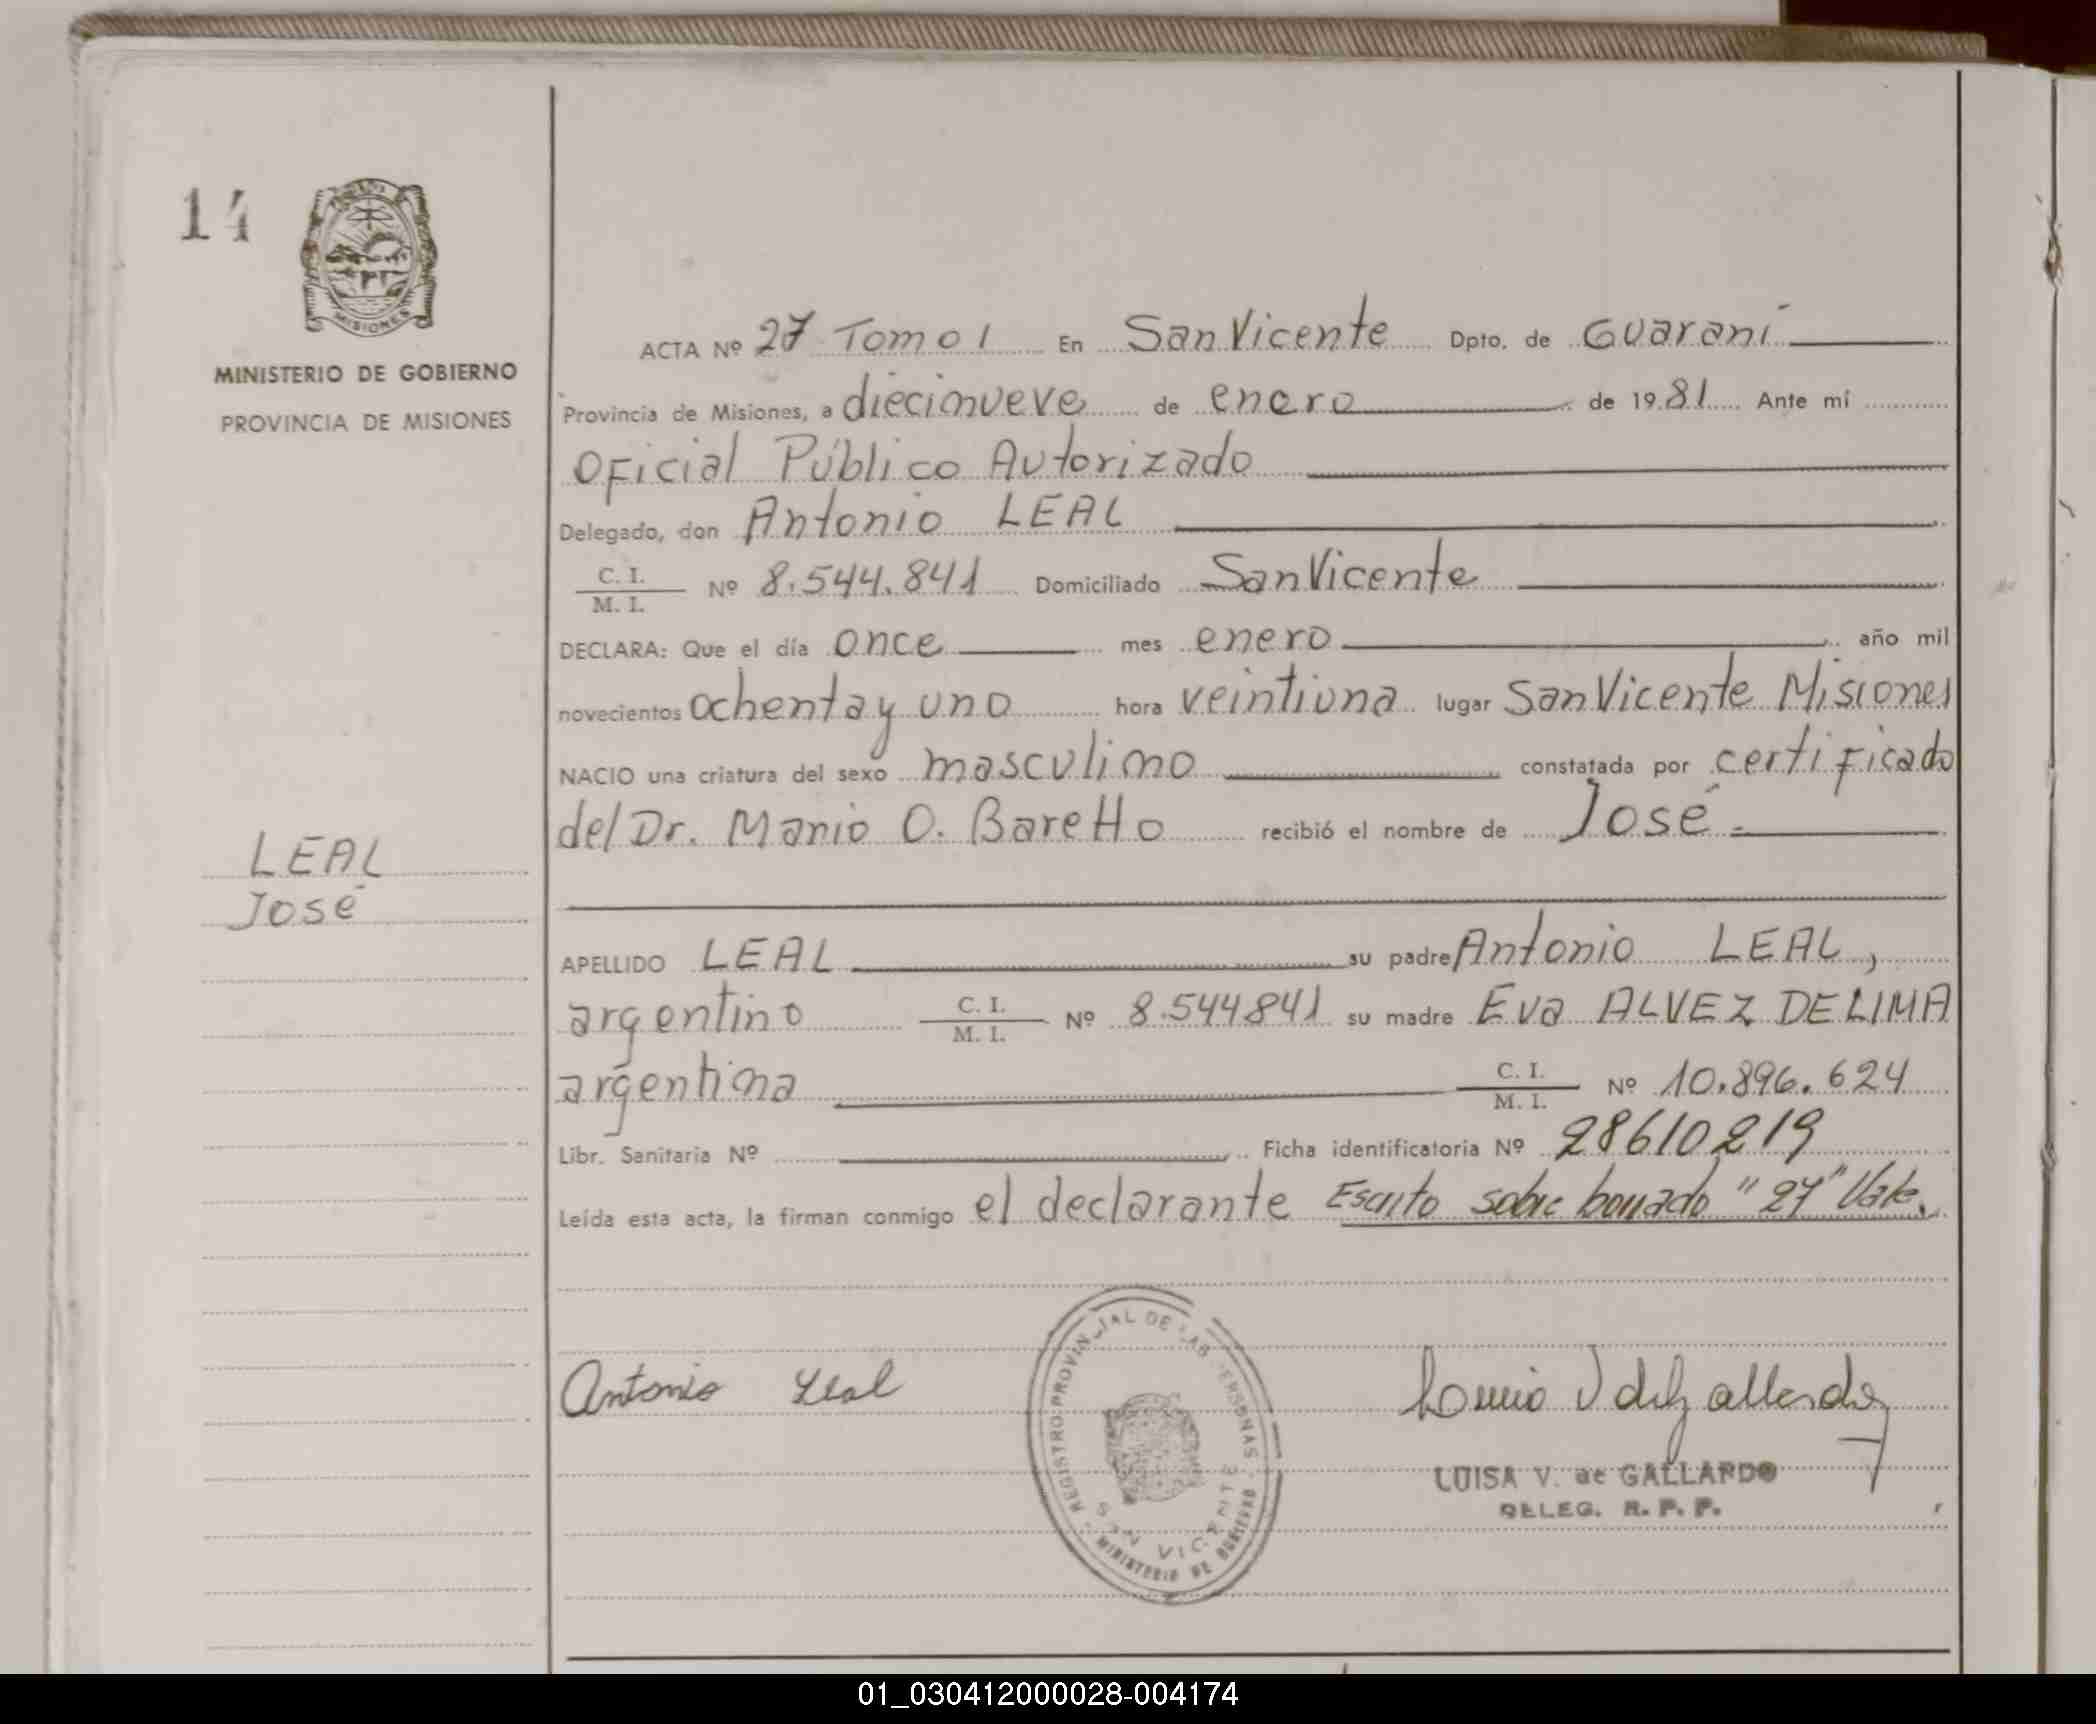 14
MISIONES
MINISTERIO DE GOBIERNO
PROVINCIA DE MISIONES
ACTA Nº 27 Tomo I En San Vicente Dpto. de Guaraní
Provincia de Misiones, a diecinueve de enero de 1981 Ante mí
Oficial Público Autorizado
Delegado, don Antonio LEAL
C. I.
M. I. Nº 8.544.841 Domiciliado San Vicente
DECLARA: Que el día once mes enero año mil
novecientos ochenta y uno hora veintiuna lugar San Vicente Misiones
NACIO una criatura del sexo masculino constatada por certificado
del Dr. Mario O. Baretto recibió el nombre de José
LEAL
José
APELLIDO LEAL su padre Antonio LEAL,
argentino C. I.
M. I. Nº 8.544841 su madre Eva ALVEZ DE LIMA
argentina C. I.
M. I. Nº 10.896.624
Libr. Sanitaria Nº Ficha identificatoria Nº 28610219
Leída esta acta, la firman conmigo el declarante Escrito sobre borrado "27" Vale.
Antonio Leal
REGISTRO PROVINCIAL DE LAS PERSONAS
SAN VICENTE
MINISTERIO DE GOBIERNO
LUISA V. de GALLARDO
DELEG. R. P. P.
01_030412000028-004174